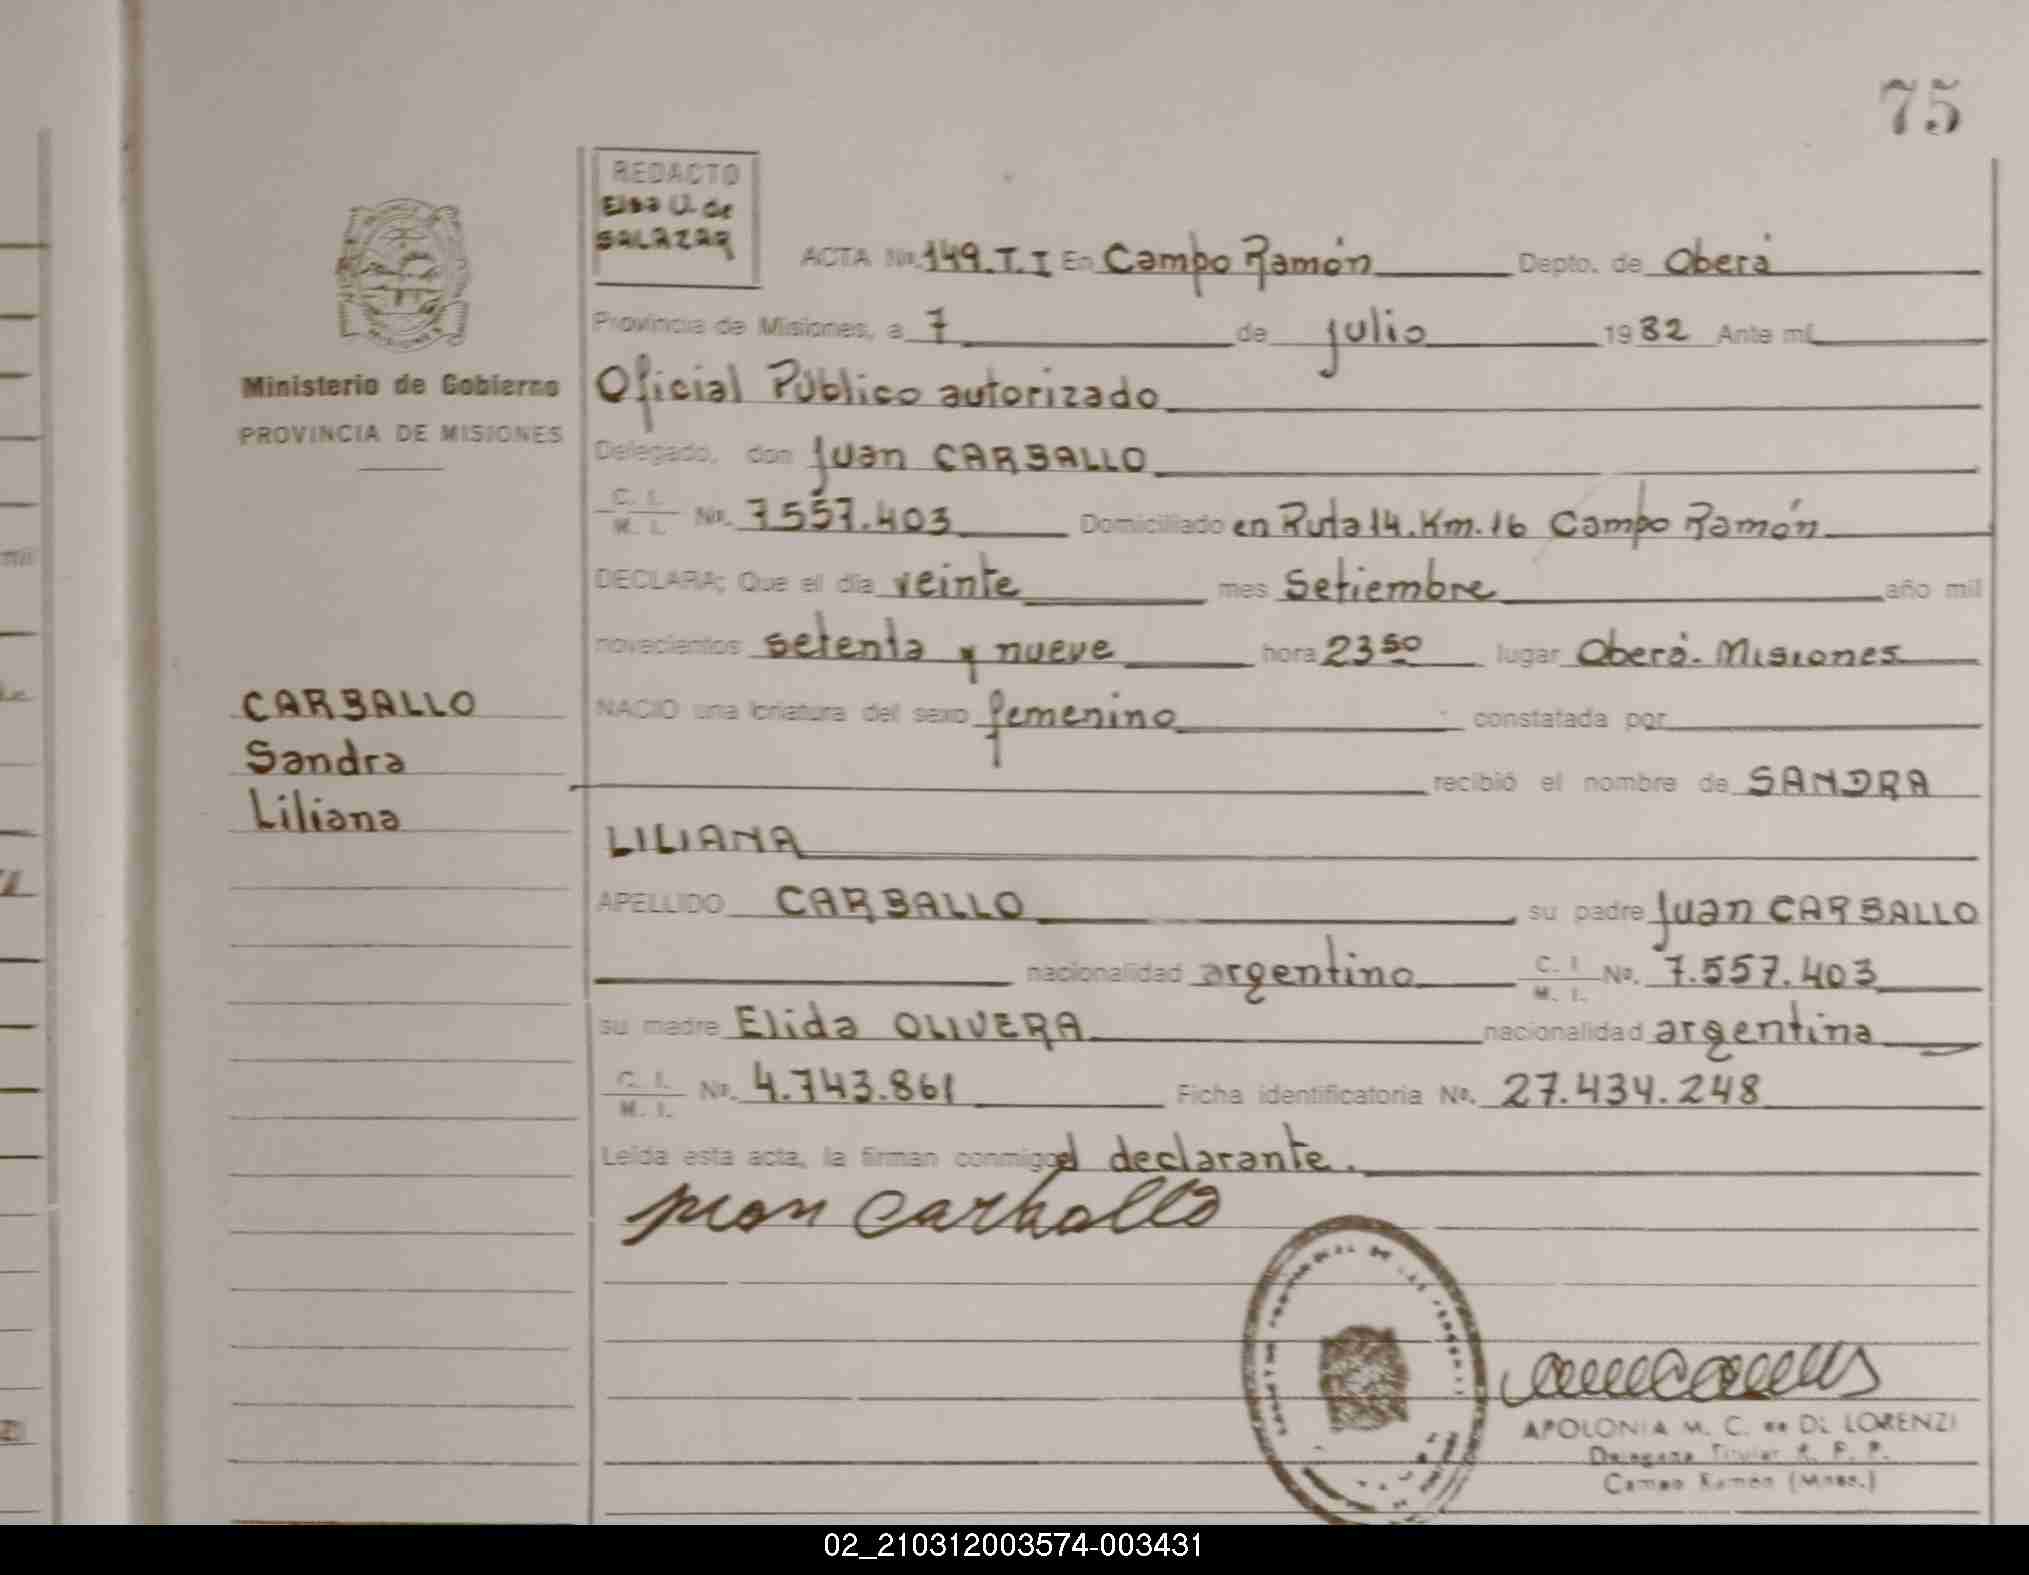 75
REDACTO
Elsa U. de
SALAZAR
ACTA Nº. 149.T.I En Campo Ramón Depto. de Oberá
Provincia de Misiones, a 7 de julio 1982 Ante mí
Ministerio de Gobierno
PROVINCIA DE MISIONES
Oficial Público autorizado
Delegado, don Juan CARBALLO
C. I. M. I. Nº. 7557.403 Domiciliado en Ruta 14. Km. 16 Campo Ramón
DECLARA; Que el día veinte mes Setiembre año mil
novecientos setenta y nueve hora 23 50 lugar Oberá. Misiones
CARBALLO
Sandra
Liliana
NACIO una criatura del sexo femenino constatada por
recibió el nombre de SANDRA
LILIANA
APELLIDO CARBALLO su padre Juan CARBALLO
nacionalidad argentino C. I. M. I. Nº. 7.557.403
su madre Elida OLIVERA nacionalidad argentina
C. I. M. I. Nº. 4.743.861 Ficha identificatoria Nº. 27.434.248
Leída esta acta, la firman conmigo el declarante.
Juan Carballo
APOLONIA M. C. de DI LORENZI
Delegada Titular R. P. P.
Campo Ramón (Mnes.)
02_210312003574-003431